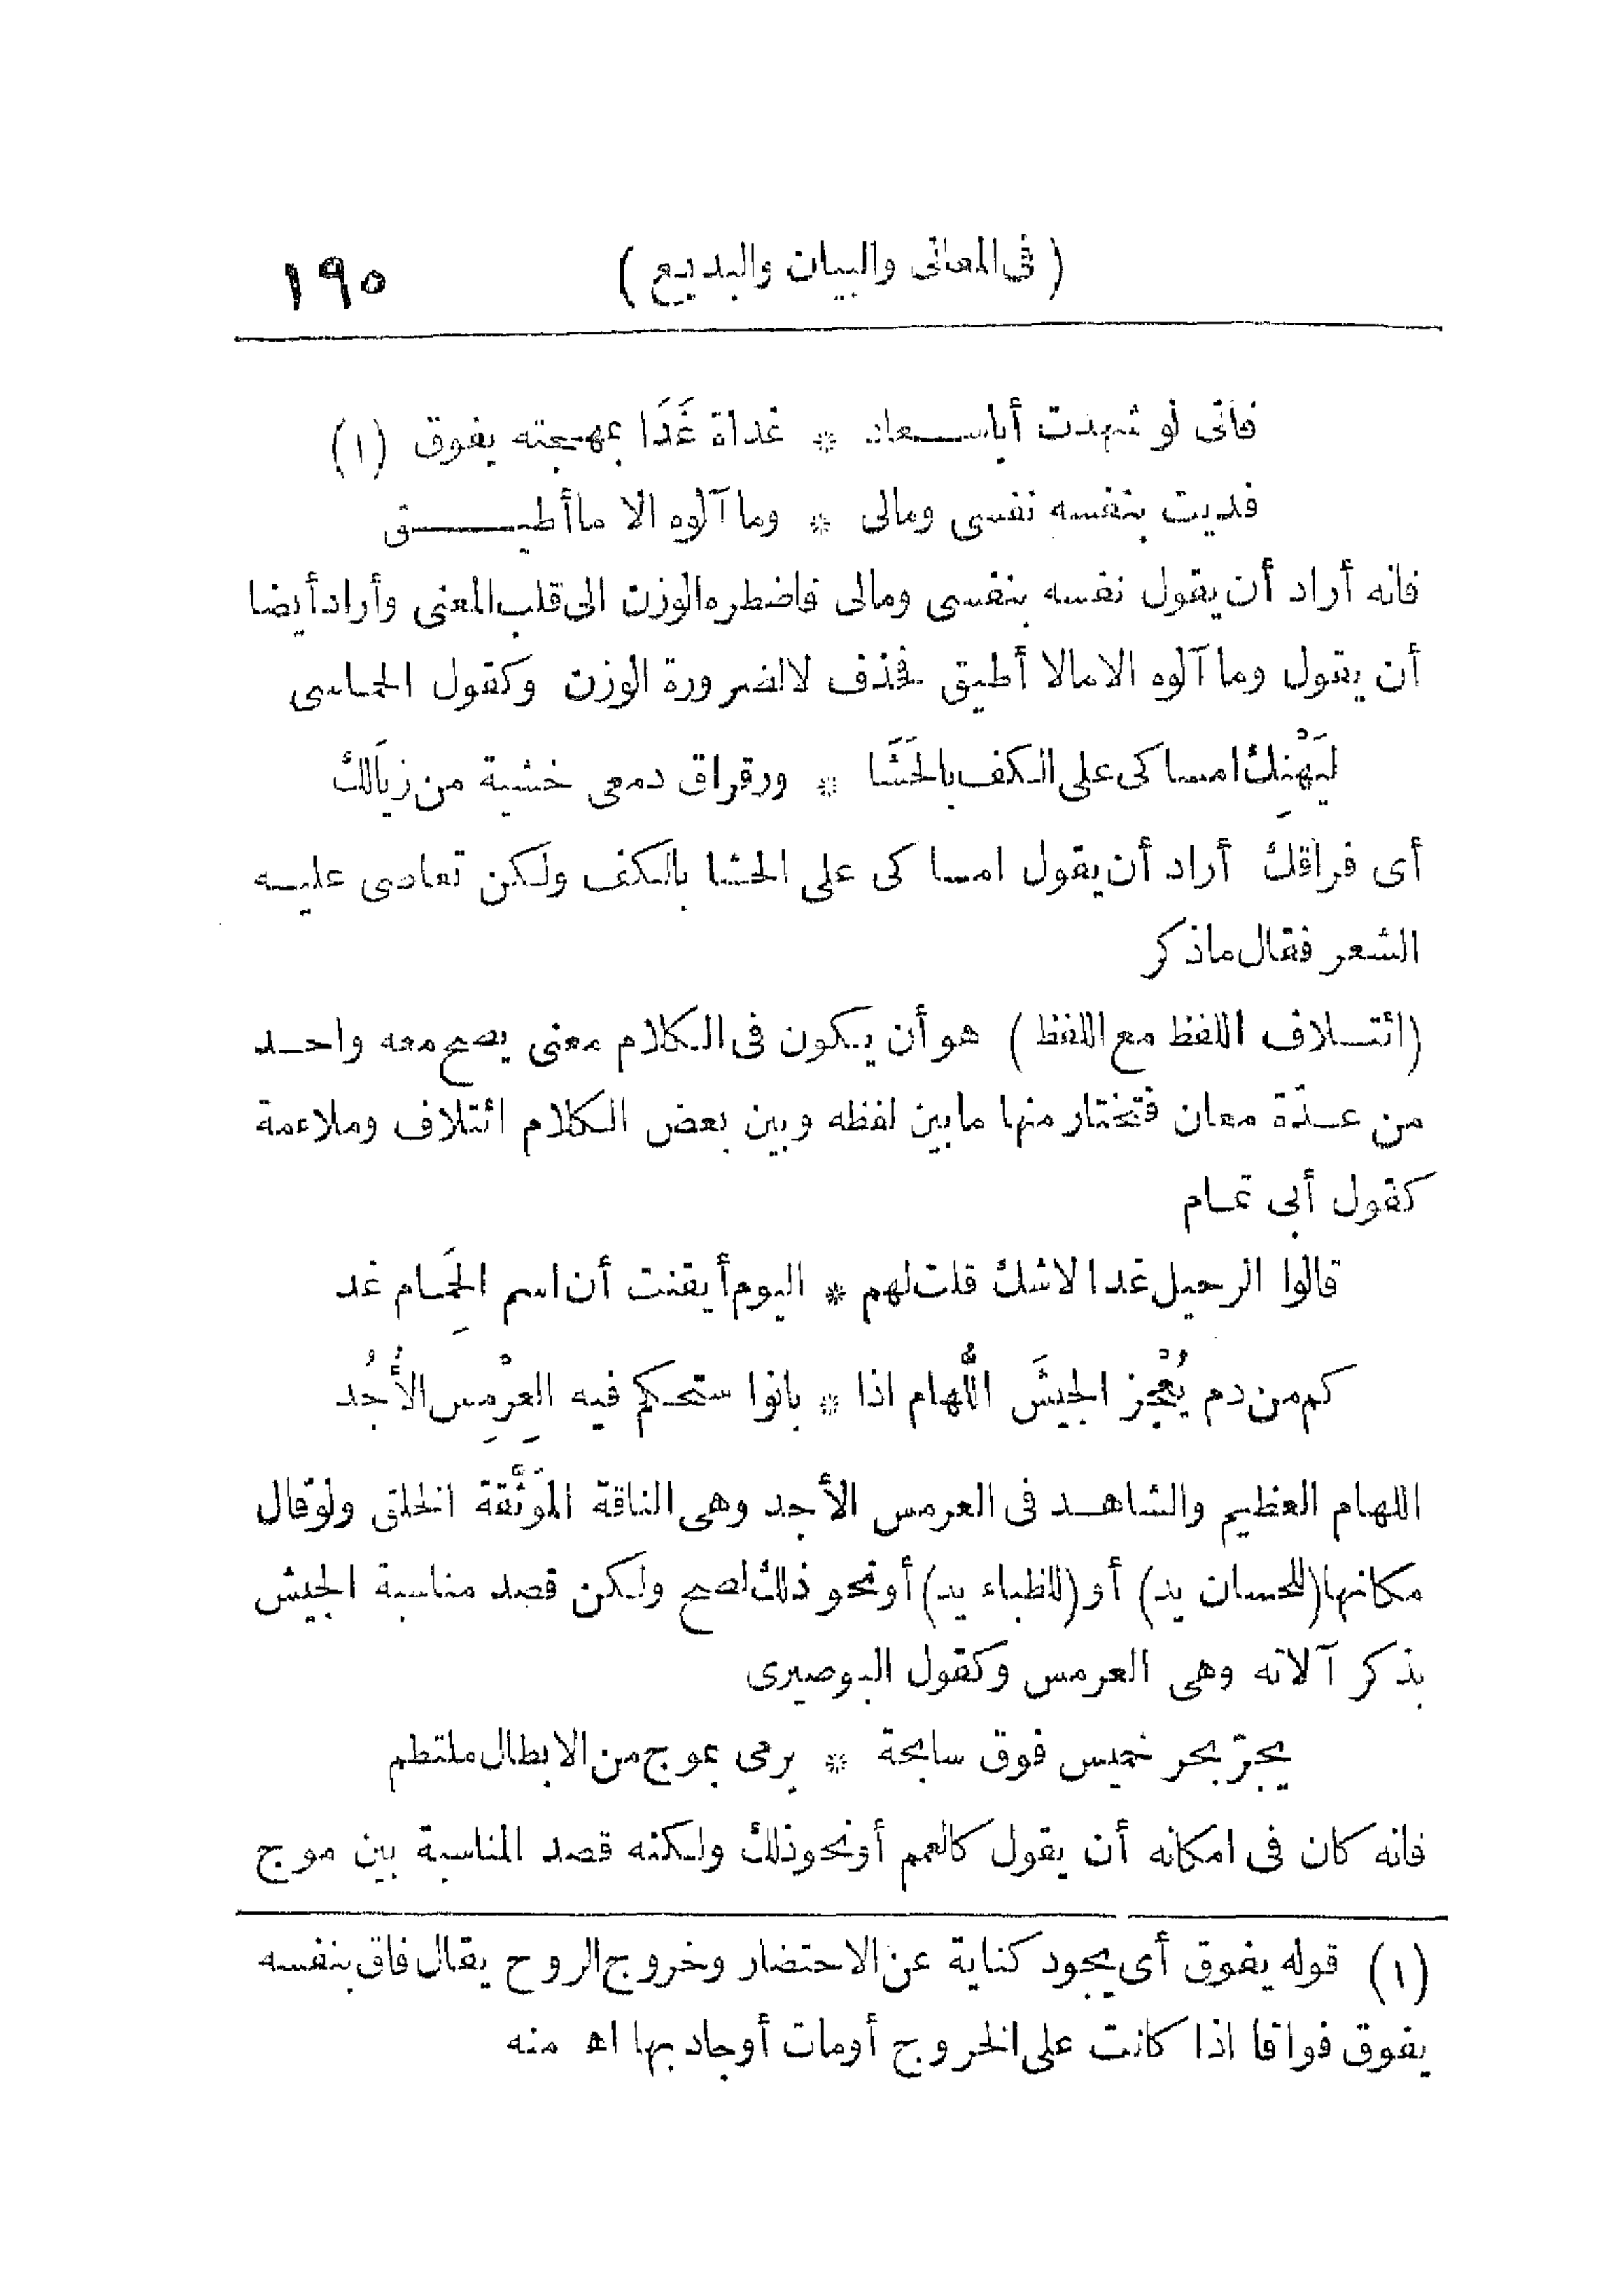 (فى المعانى والبيان والبديع) ١٩٥
فانى لو شهدت أبا سعاد * غداة غَدَا بمهجته يفوق (١)
فديت بنفسه نفسى ومالى * وما آلوه الا ما أطيق
فانه أراد أن يقول نفسه بنفسى ومالى فاضطره الوزن الى قلب المعنى وأراد أيضا
أن يقول وما آلوه الا مالا أطيق فحذف لا لضرورة الوزن وكقول الحماسى
لَيَهْنِك امساكى على الكف بالحَشَا * ورقراق دمعى خشية من زيَالك
أى فراقك أراد أن يقول امساكى على الحشا بالكف ولكن تعاصى عليه
الشعر فقال ماذكر
(ائتلاف اللفظ مع اللفظ) هو أن يكون فى الكلام معنى يصح معه واحد
من عدّة معان فتختار منها ما بين لفظه وبين بعض الكلام ائتلاف وملاءمة
كقول أبى تمام
قالوا الرحيل غدا لاشك قلت لهم * اليوم أيقنت أن اسم الحِمَام غد
كم من دم يُعْجز الجيشَ اللُّهام اذا * بانوا ستحكم فيه العِرْمِس الأُجُد
اللهام العظيم والشاهد فى العرمس الأجد وهى الناقة الموَثَّقة الخلق ولو قال
مكانها (للحسان يد) أو (للظباء يد) أونحو ذلك لصح ولكن قصد مناسبة الجيش
بذكر آلاته وهى العرمس وكقول البوصيرى
يجرّ بحر خميس فوق سابحة * يرمى بموج من الابطال ملتطم
فانه كان فى امكانه أن يقول كالعمم أونحوذلك ولكنه قصد المناسبة بين موج
(١) قوله يفوق أى يجود كناية عن الاحتضار وخروج الروح يقال فاق بنفسه
يفوق فواقا اذا كانت على الخروج أومات أوجاد بها اه منه